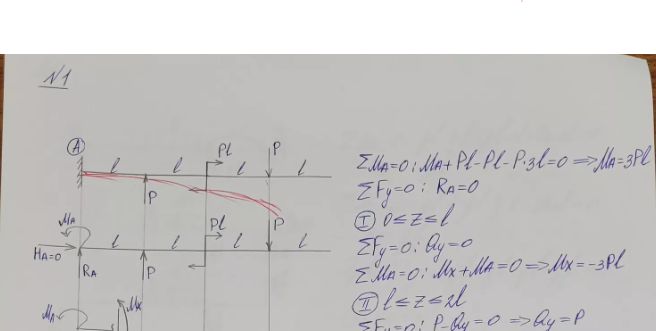 N1
A
l l Pl l P l
P
MA l l Pl l P l
HA=0
RA P
MA Mx
ΣMA=0: MA+Pl-Pl-P·3l=0 ⇒ MA=3Pl
ΣFy=0: RA=0
I 0≤z≤l
ΣFy=0: Qy=0
ΣMA=0: Mx+MA=0 ⇒ Mx=-3Pl
II l≤z≤2l
ΣFy=0: P-Qy=0 ⇒ Qy=P